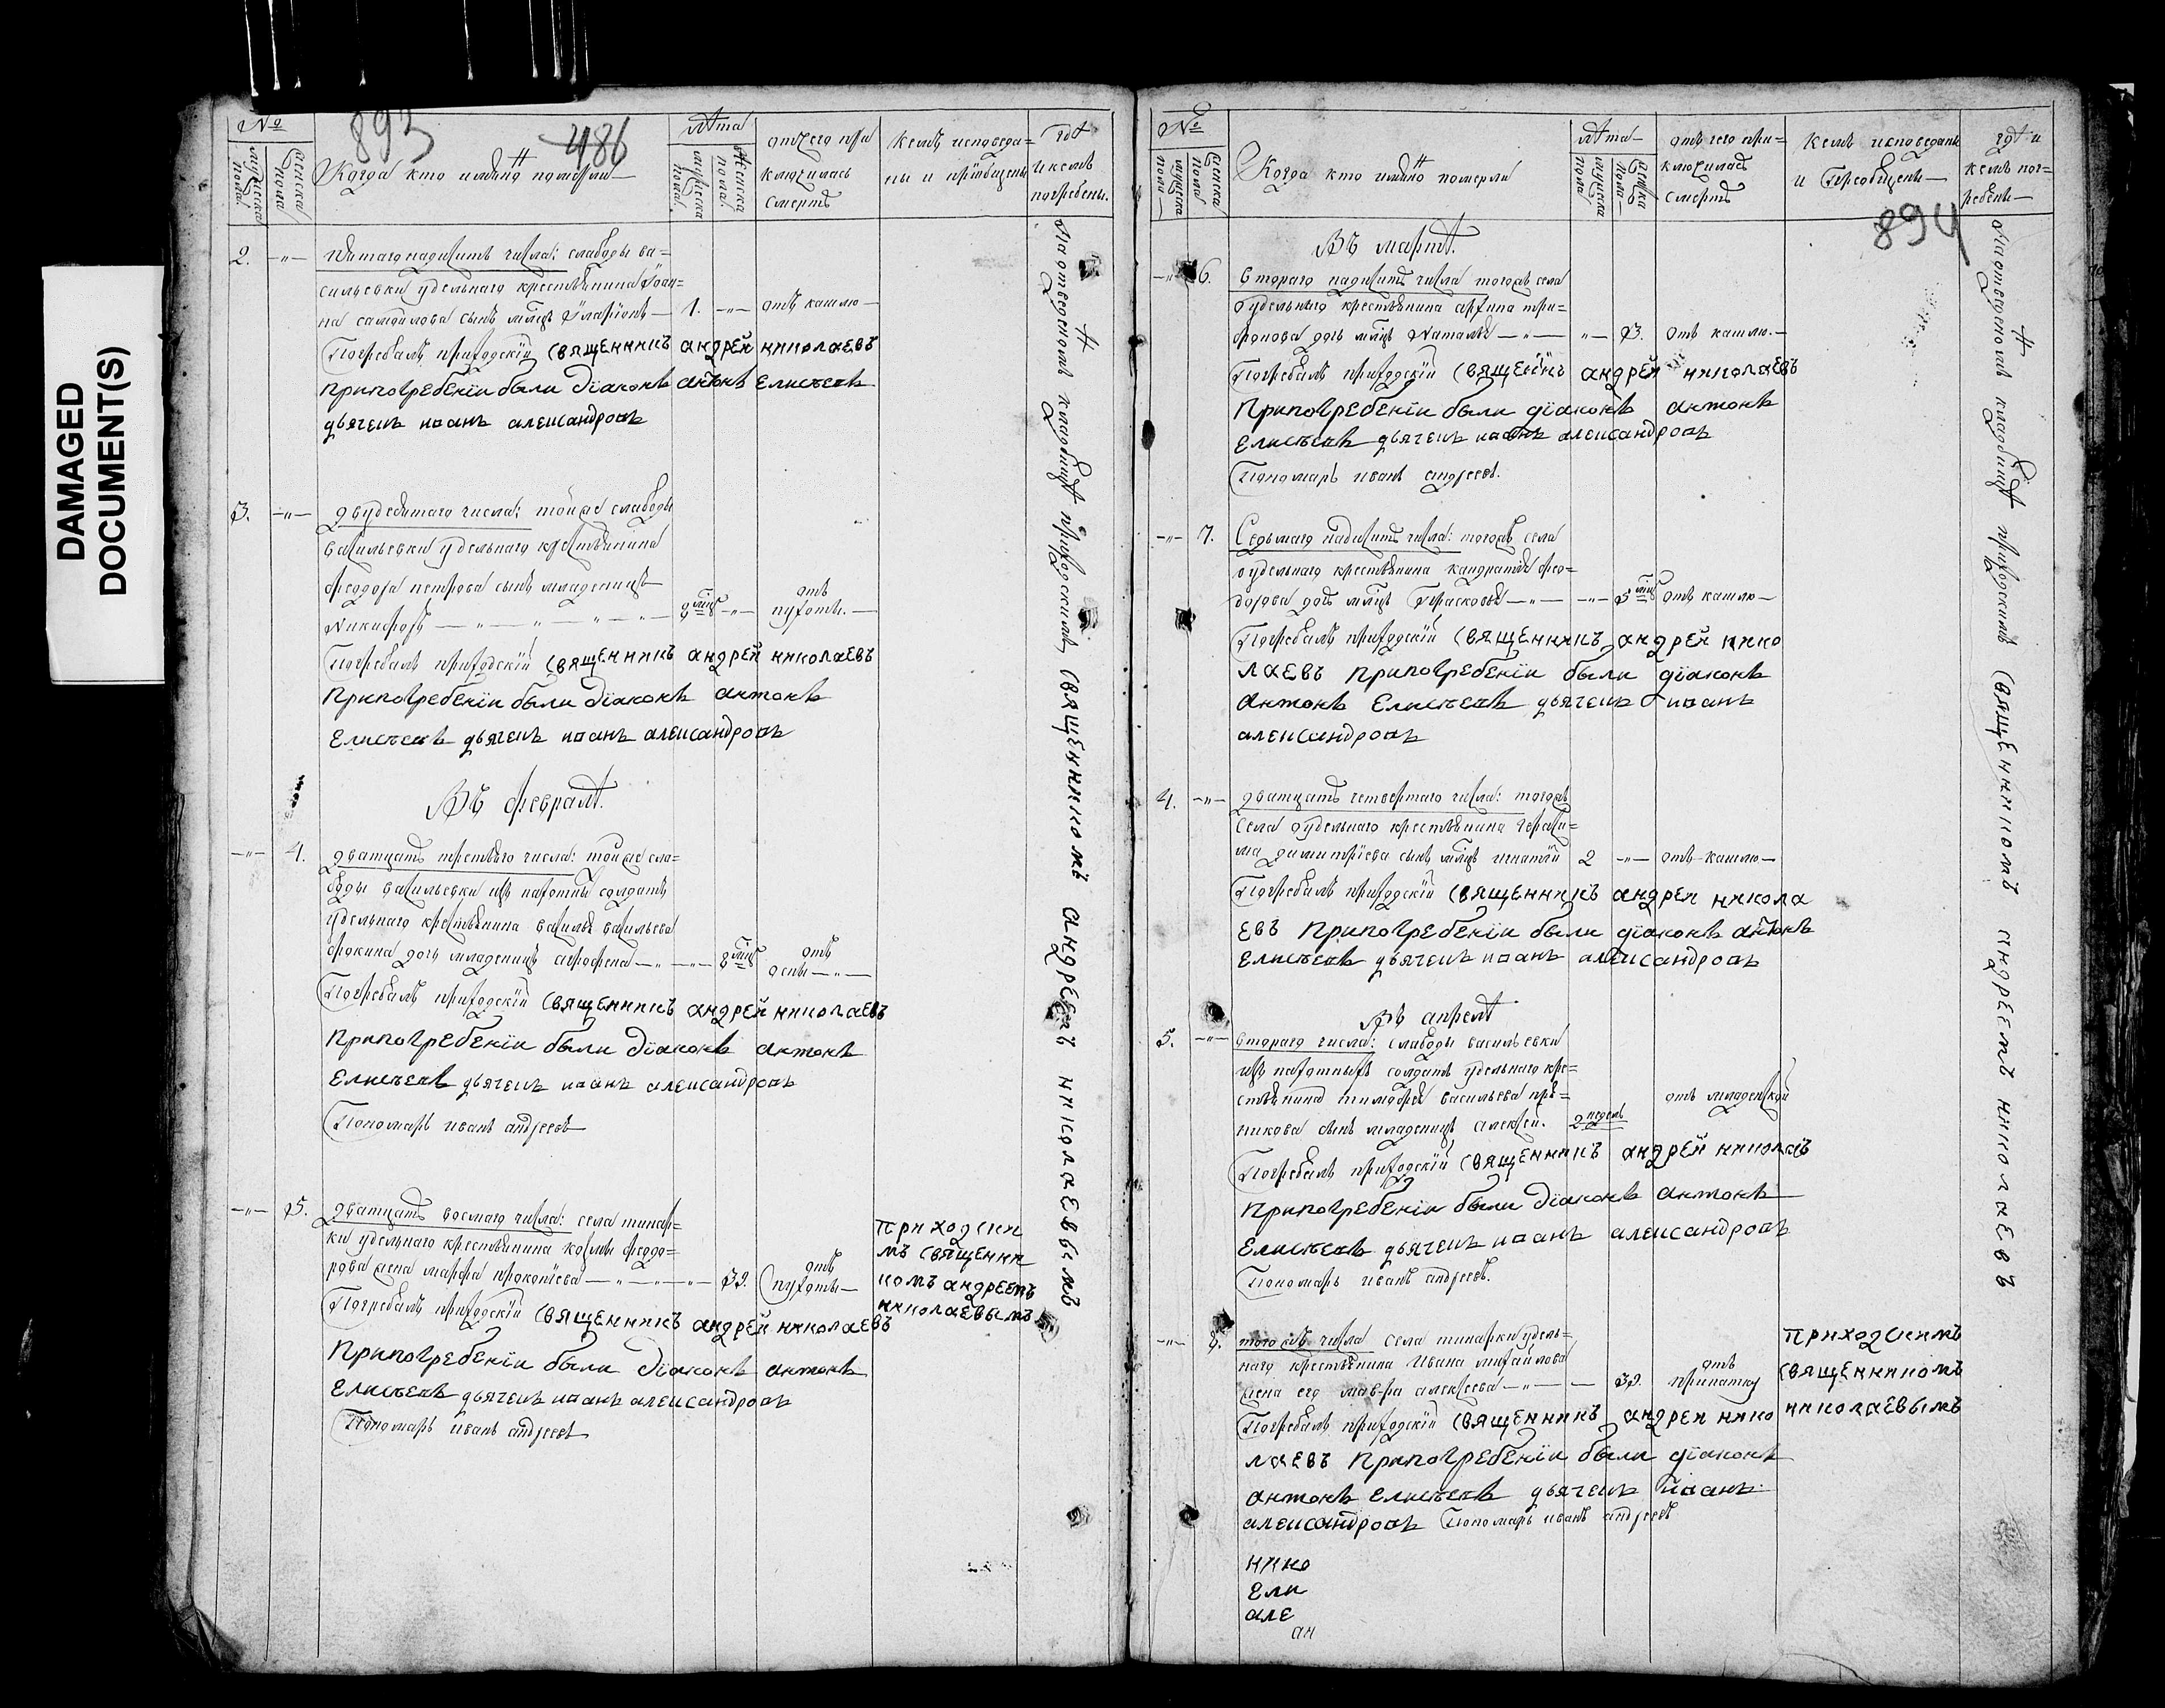 DAMAGED
DOCUMENT(S)
№
мужеска пола
женска пола
893
486
Когда кто имянно померли
лѣта
мужеска пола.
женска пола.
отчего при
ключилась
смерть
кемъ исповеда-
ны и пріобщены
гдѣ
и кемъ
погребены.
2.
числа: слабоды ва-
сильевки удельнаго крестьянина Іоан-
на самойлова сынъ млнцъ Иларіонъ
1.
отъ кашлю
Погребалъ приходскій священникъ андрей николаевъ
припогребеніи были діаконъ антонъ елисѣевъ
дьячекъ иоанъ александровъ
3.
двудесятаго числа: тойже слабоды
васильевки удельнаго крестьянина
феодора петрова сынъ младенецъ
Никифоръ
9 мцъ
отъ
пухоты.
Погребалъ приходскій священникъ андрей николаевъ
припогребеніи были діаконъ антонъ
елисѣевъ дьячекъ иоанъ александровъ
Въ февралѣ.
4.
дватцать третьяго числа: тойже сла-
боды васильевки изъ пахотныхъ солдатъ
удельнаго крестьянина василья васильева
фокина дочь младенецъ агрофена
8 мцъ
отъ
оспы
Погребалъ приходскій священникъ андрей николаевъ
припогребеніи были діаконъ антонъ
елисѣевъ дьячекъ иоанъ александровъ
Пономарь иванъ андреевъ
5.
дватцать восмаго числа: села тинар-
ки удельнаго крестьянина космы феодо-
рова жена марфа прокопіева
39.
отъ
пухоты
приходски
мъ священни
комъ андреемъ
николаевымъ
Погребалъ приходскій священникъ андрей николаевъ
припогребеніи были діаконъ антонъ
елисѣевъ дьячекъ иоанъ александровъ
Пономарь иванъ андреевъ
На отведеномъ кладбищѣ приходскимъ священникомъ андреемъ николаевымъ
№
мужеска пола
женска пола
Когда кто имянно померли
лѣта
мужеска пола
женска пола
отъ чего при-
ключилась
смерть
Кемъ исповеданъ
и Преобщены
гдѣ и
кемъ пог-
ребены
894
Въ мартѣ.
6.
втораго надесить числа тогожъ села
удельнаго крестьянина архипа три-
фонова дочь млнцъ Наталья
3.
отъ кашлю.
Погребалъ приходскій священнкъ андрей николаевъ
припогребеніи были діаконъ антонъ
елисѣевъ дьячекъ иоанъ александровъ
Пономарь иванъ андреевъ.
7.
Седьмаго надесить числа: тогожъ села
удельнаго крестьянина кандратья фео-
дорова дочь млнцъ Прасковья
5 мцъ
отъ кашлю
Погребалъ приходскій священникъ андрей нико
лаевъ припогребеніи были діаконъ
антонъ елисѣевъ дьячекъ иоанъ
александровъ
4.
дватцать четвертаго числа: тогожъ
села удельнаго крестьянина Гераси-
ма димитріева сынъ млнцъ игнатій
2
отъ кашлю
Погребалъ приходскій священникъ андрей никола
евъ припогребеніи были діаконъ антонъ
елисѣевъ дьячекъ иоанъ александровъ
Въ апрелѣ
5.
втораго числа: слабоды васильевки
изъ пахотныхъ солдатъ удельнаго кре-
стьянина тимофея васильева
никова сынъ младенецъ алексей.
2 недель
отъ младенской
Погребалъ приходскій священникъ андрей николаевъ
припогребеніи были діаконъ антонъ
елисѣевъ дьячекъ иоанъ александровъ
Пономарь иванъ андреевъ.
8.
того жъ числа села тинарки удель-
наго крестьянина Ивана михайлова
жена его мавра алексеева
39.
отъ
припатку
приходскимъ
священникомъ
николаевымъ
Погребалъ приходскій священникъ андрей нико
лаевъ припогребеніи были діаконъ
антонъ елисѣевъ дьячекъ иоанъ
александровъ Пономарь иванъ андреевъ
нико
ели
але
ан
На отведеномъ кладбищѣ приходскимъ священникомъ андреемъ николаевъ